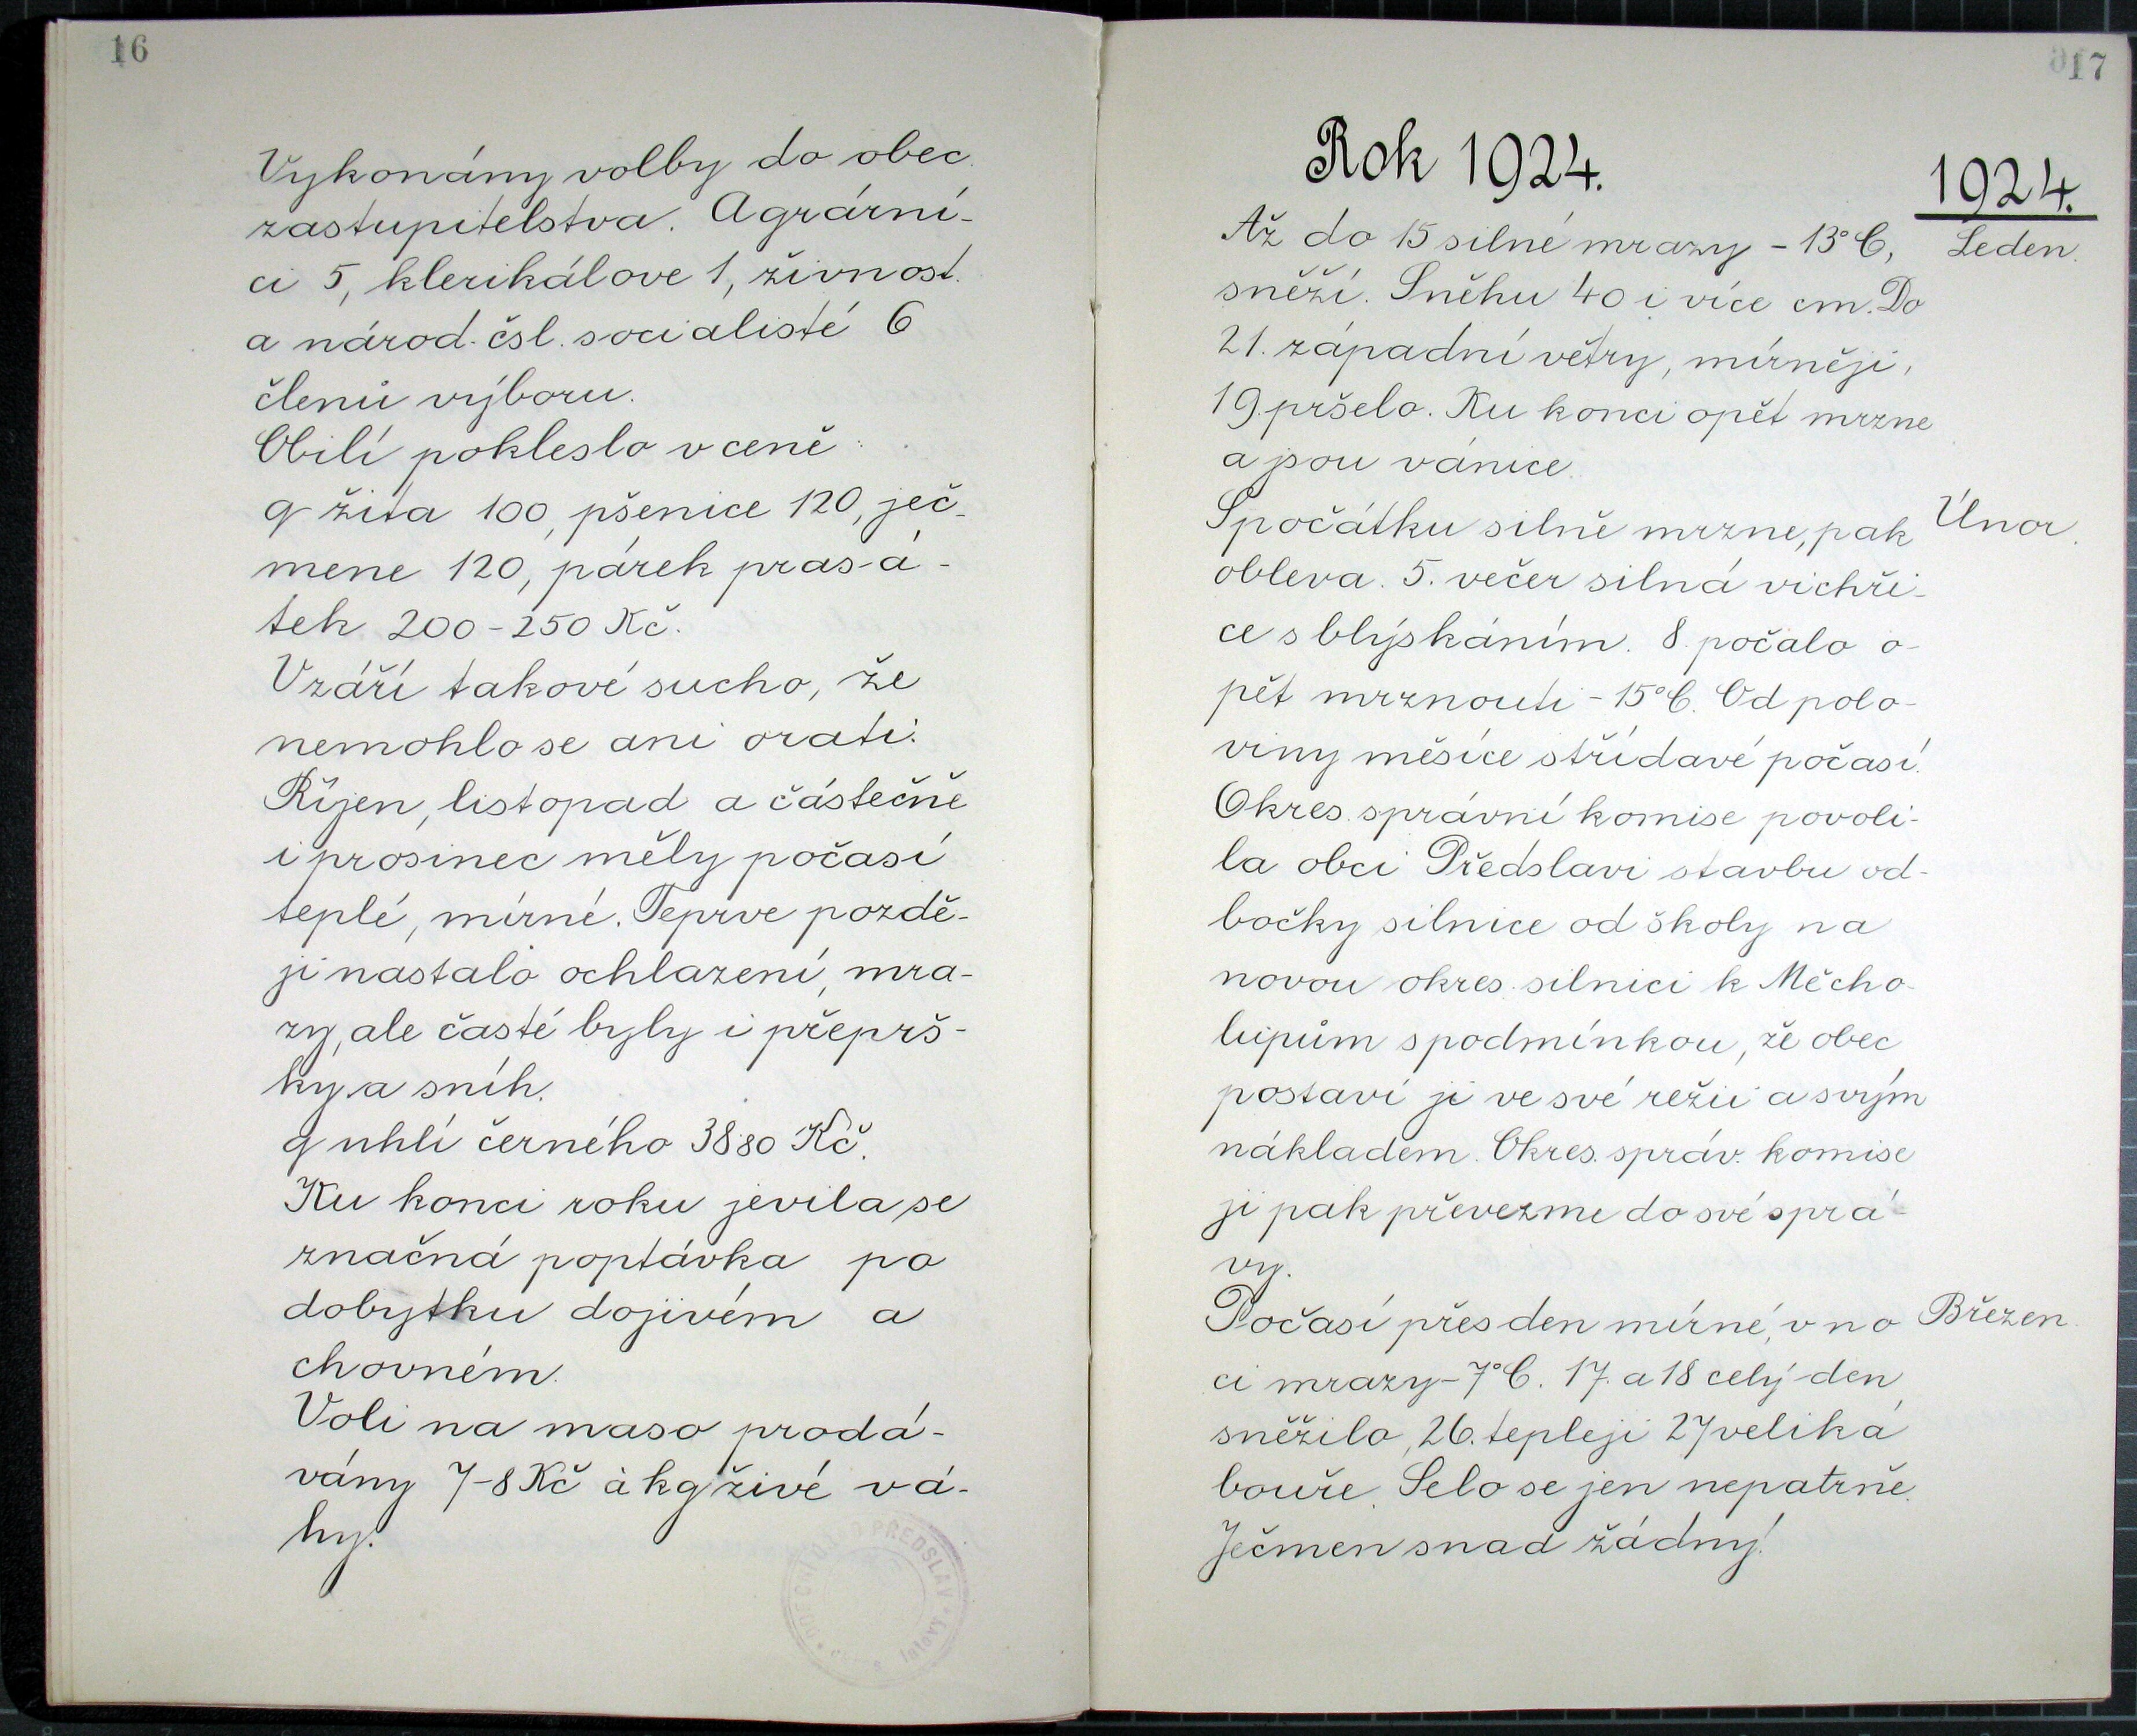 16
Vykonány volby do obec.
zastupitelstva. Agrární-
ci 5, klerikálove 1, živnost.
a národ. čsl. socialisté 6
členů výboru.
Obilí pokleslo v ceně:
q žita 100, pšenice 120, ječ-
mene 120, párek prasá-
tek 200-250 Kč.
V září takové sucho, že
nemohlo se ani orati.
Říjen, listopad a částečně
i prosinec měly počasí
teplé, mírné. Teprve pozdě-
ji nastalo ochlazení, mra-
zy, ale časté byly i přeprš-
ky a sníh.
q uhlí černého 38.80 Kč.
Ku konci roku jevila se
značná poptávka po
dobytku dojivém a
chovném.
Voli na maso prodá-
vány 7-8 Kč à kg živé vá-
hy.
PŘEDSLAV
17
Rok 1924.
1924.
Až do 15 silné mrazy - 13°C,
Leden.
sněží. Sněhu 40 i více cm. Do
21. západní větry, mírněji,
19. pršelo. Ku konci opět mrzne
a jsou vánice.
Spočátku silně mrzne, pak
Únor.
obleva. 5. večer silná vichři-
ce s blýskáním. 8. počalo o-
pět mrznouti - 15°C. Od polo-
viny měsíce střídavé počasí.
Okres. správní komise povoli-
la obci Předslavi stavbu od-
bočky silnice od školy na
novou okres. silnici k Měcho-
lupům s podmínkou, že obec
postaví ji ve své režii a svým
nákladem. Okres. správ. komise
ji pak převezme do své sprá-
vy.
Počasí přes den mírné, v no
Březen.
ci mrazy - 7°C. 17. a 18 celý den
sněžilo, 26. tepleji 27 veliká
bouře. Selo se jen nepatrně.
Ječmen snad žádný!